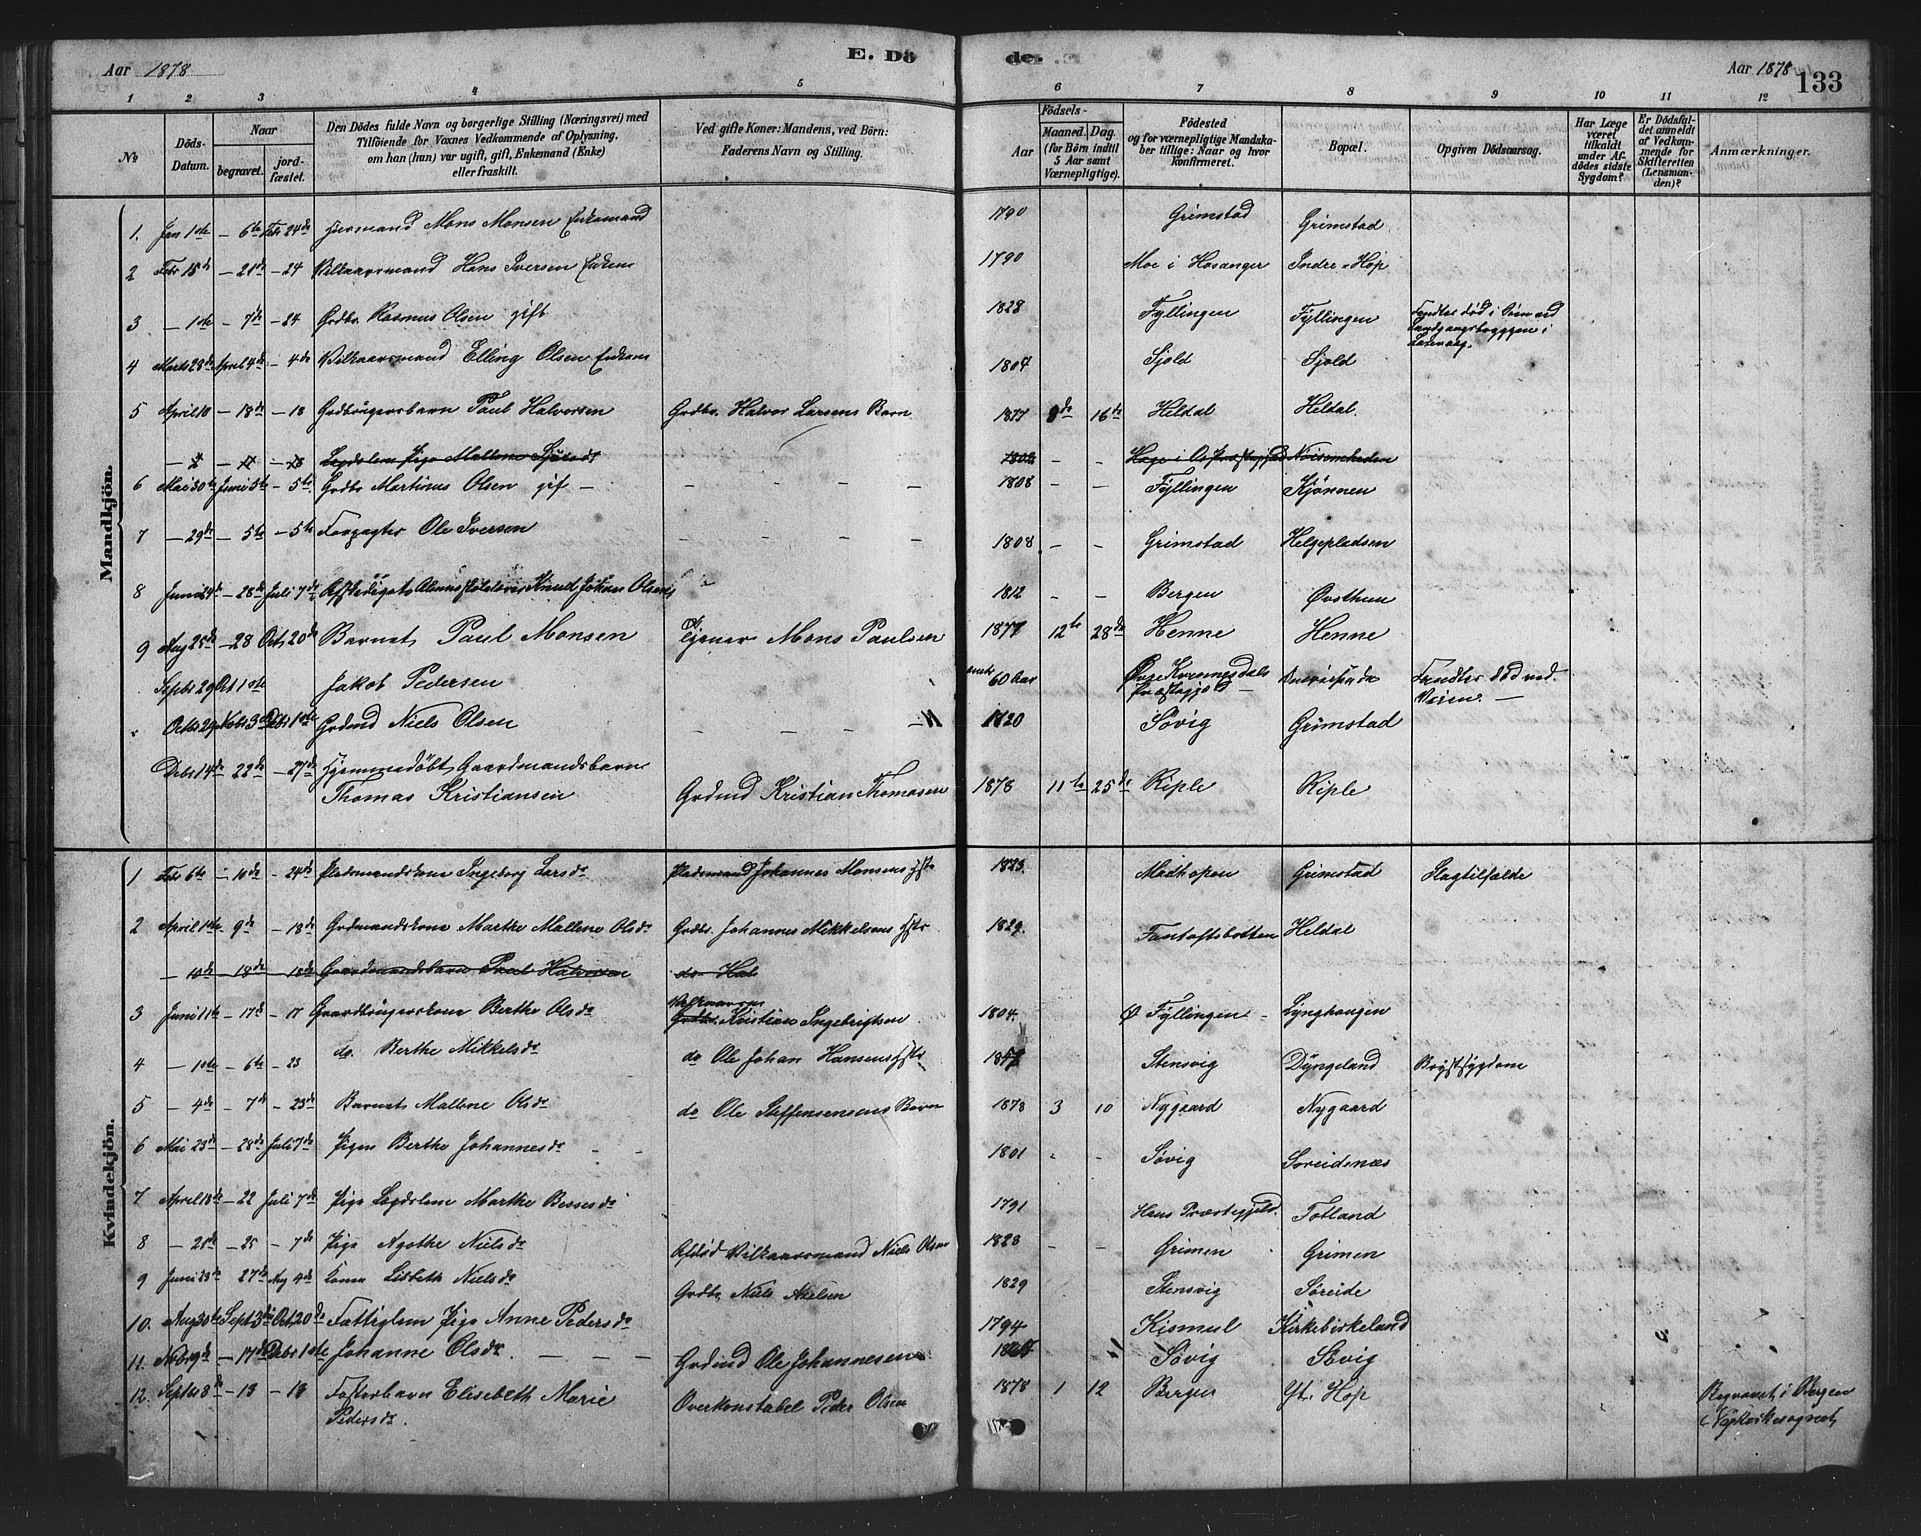 Aar 1878
E. Dö
de.
Aar 1878
133
1 2 3 4 5 6 7 8 9 10 11 12
No
Döds-
Datum.
Naar
begravet.
jord-
fæstet.
Den Dödes fulde Navn og borgerlige Stilling (Næringsvei) med
Tilföiende for Voxnes Vedkommende af Oplysning,
om han (hun) var ugift, gift, Enkemand (Enke)
eller fraskilt.
Ved gifte Koner: Mandens, ved Börn:
Faderens Navn og Stilling.
Födsels-
Aar
Maaned. Dag.
(for Börn indtil
5 Aar samt
Værnepligtige).
Födested
og for værnepligtige Mandska-
ber tillige: Naar og hvor
konfirmeret.
Bopæl.
Opgiven Dödsaarsag.
Har Læge
været
tilkaldt
under Af-
dödes sidste
Sygdom?
Er Dödsfal-
det anmeldt
af Vedkom-
mende for
Skifteretten
(Lensman-
den)?
Anmærkninger.
Mandkjön.
1. Jan 1ste – 6te Febr 24de Mons Monsen Enkemand 1790 Grimstad Grimstad
2 Febr 15de – 21de – 24 Vilkaarsmand Hans Iversen Enkem 1790 Moe i Hosanger Indre-Hop
3 – 1ste – 7de – 24 Grdbr. Rasmus Olsen gift 1828 Fyllingen Fyllingen Fundtes død i Søen ved
Landgangsbryggen i
4 Marts 28de April 4de – 4de Vilkaarsmand Elling Olsen Enkem 1804 Sjold Sjold
5 April 10 – 18de – 18 Grdbrügersbarn Paul Halvorsen Grdbr. Halvor Larsens Barn 1877 8de 16de Heldal Heldal.
Legdslem Pige Mallene 1802 – –
6 Mai 30te Juni 5te – 5te Grdbr Martinus Olsen gift – – – – – 1808 – – Fyllingen Kjønnen
7 – 29de – 5te – 5te Forpagter Ole Iversen – – – – 1808 – – Grimstad Helgepladsen
8 Juni 24de – 28de Juli 7de Knud Johan Olsen 1812 – – Bergen Øvsthun
9 Aug 25de – 28 Oct 20de Barnet Paul Monsen Tjener Mons Paulsen 1877 12te 28de Henne Henne
Septbr 29 Oct 1ste Jakob Pedersen omtr 60 Aar Øvre Kvinnesdals
Præstegjeld – Fundtes død ved
Veien. –
Octbr 29 Novbr 3de Debr 1ste Grdmd Niels Olsen – – – 1820 Søvig Grimstad
Debr 14de 22de – 27de Hjemmedøbt Gaardmandsbarn
Thomas Kristiansen Grdmd Kristian Thomasen 1878 11te 25de Riple Riple
Kvindekjön.
1 Febr 6te – 10de – 24de Pladsmandskone Ingeborg Larsdr Pladsmand Johannes Monsens Hstr 1823. Midthopen Grimstad Slagtilfælde
2 April 1ste – 9de – 18de Grdmandskone Marthe Mallene Olsdr Grdbr. Johannes Mikkelsens Hstr 1829. Fantoftsbotten Heldal
– 10de – 18de – 18de Gaardmandsbarn Paul Halvorsen do Hal
3 Juni 11te – 17de – 17 Gaardbrügerskone Berthe Olsdr Vilkaarsm
Grdbr. Kristian Ingebrigtsen 1804. Ø Fyllingen – Lynghaugen
4 – 10te – 6te – 23 do. Berthe Mikkelsdr do Ole Johan Hansens Hstr Stensvig Dyngeland Brystsygdom
5 – 4de – 7de – 23de Barnet Mallene Olsdr do Ole Steffensens Barn 1878 3 10 Nygaard Nygaard
6 Mai 23de – 28de Juli 7de Pigen Berthe Johannesdr – – 1801 – – Søvig Søreidenæs
7 April 18de – 22 Juli 7de Pige Legdslem Marthe Bessesdr 1791 Haus Præstegjeld. Totland
8 – 21de – 25 – 7de Pige Agathe Nielsdr Afdød Vilkaarsmand Niels Olsen 1828 – – Grimen Grimen
9 Juni 23de 27de Aug 4de Kone Lisbeth Nielsdr Grdbr. Niels Akelsen 1829 Stensvig Søreide
10. Aug 30te Sept 3die Oct 20de Fattiglem Pige Anne Pedersdr 1794 Kismul Kirkebirkeland
11. Nov 9de – 17de Debr 1ste Johanne Olsdr. – – – Grdmd Ole Johannesen Søvig Søvig
12. Septbr 8de – 13 – 13 Fosterbarn Elisebeth Marie
Pedersdr. Overkonstabel Peder Olsen 1878 1 12 Bergen Yt. Hop Begravet i Bergen
(Nykirkesognet)